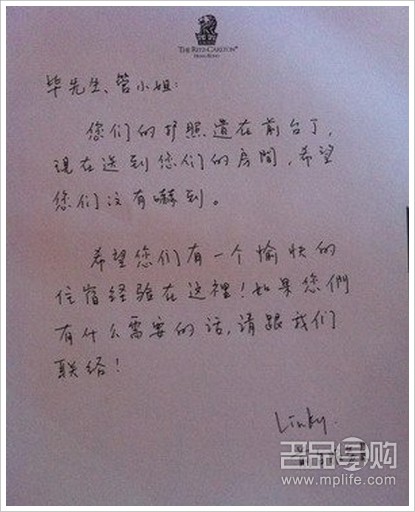 THE RITZ-CARLTON®
HONG KONG
毕先生、管小姐:
您们的护照遗在前台了,
现在送到您们的房間,希望
您们没有嚇到。
希望您们有一个愉快的
住宿经验在这裡!如果您們
有什么需要的话,请跟我们
联络!
Linky.
名品导购
www.mplife.com